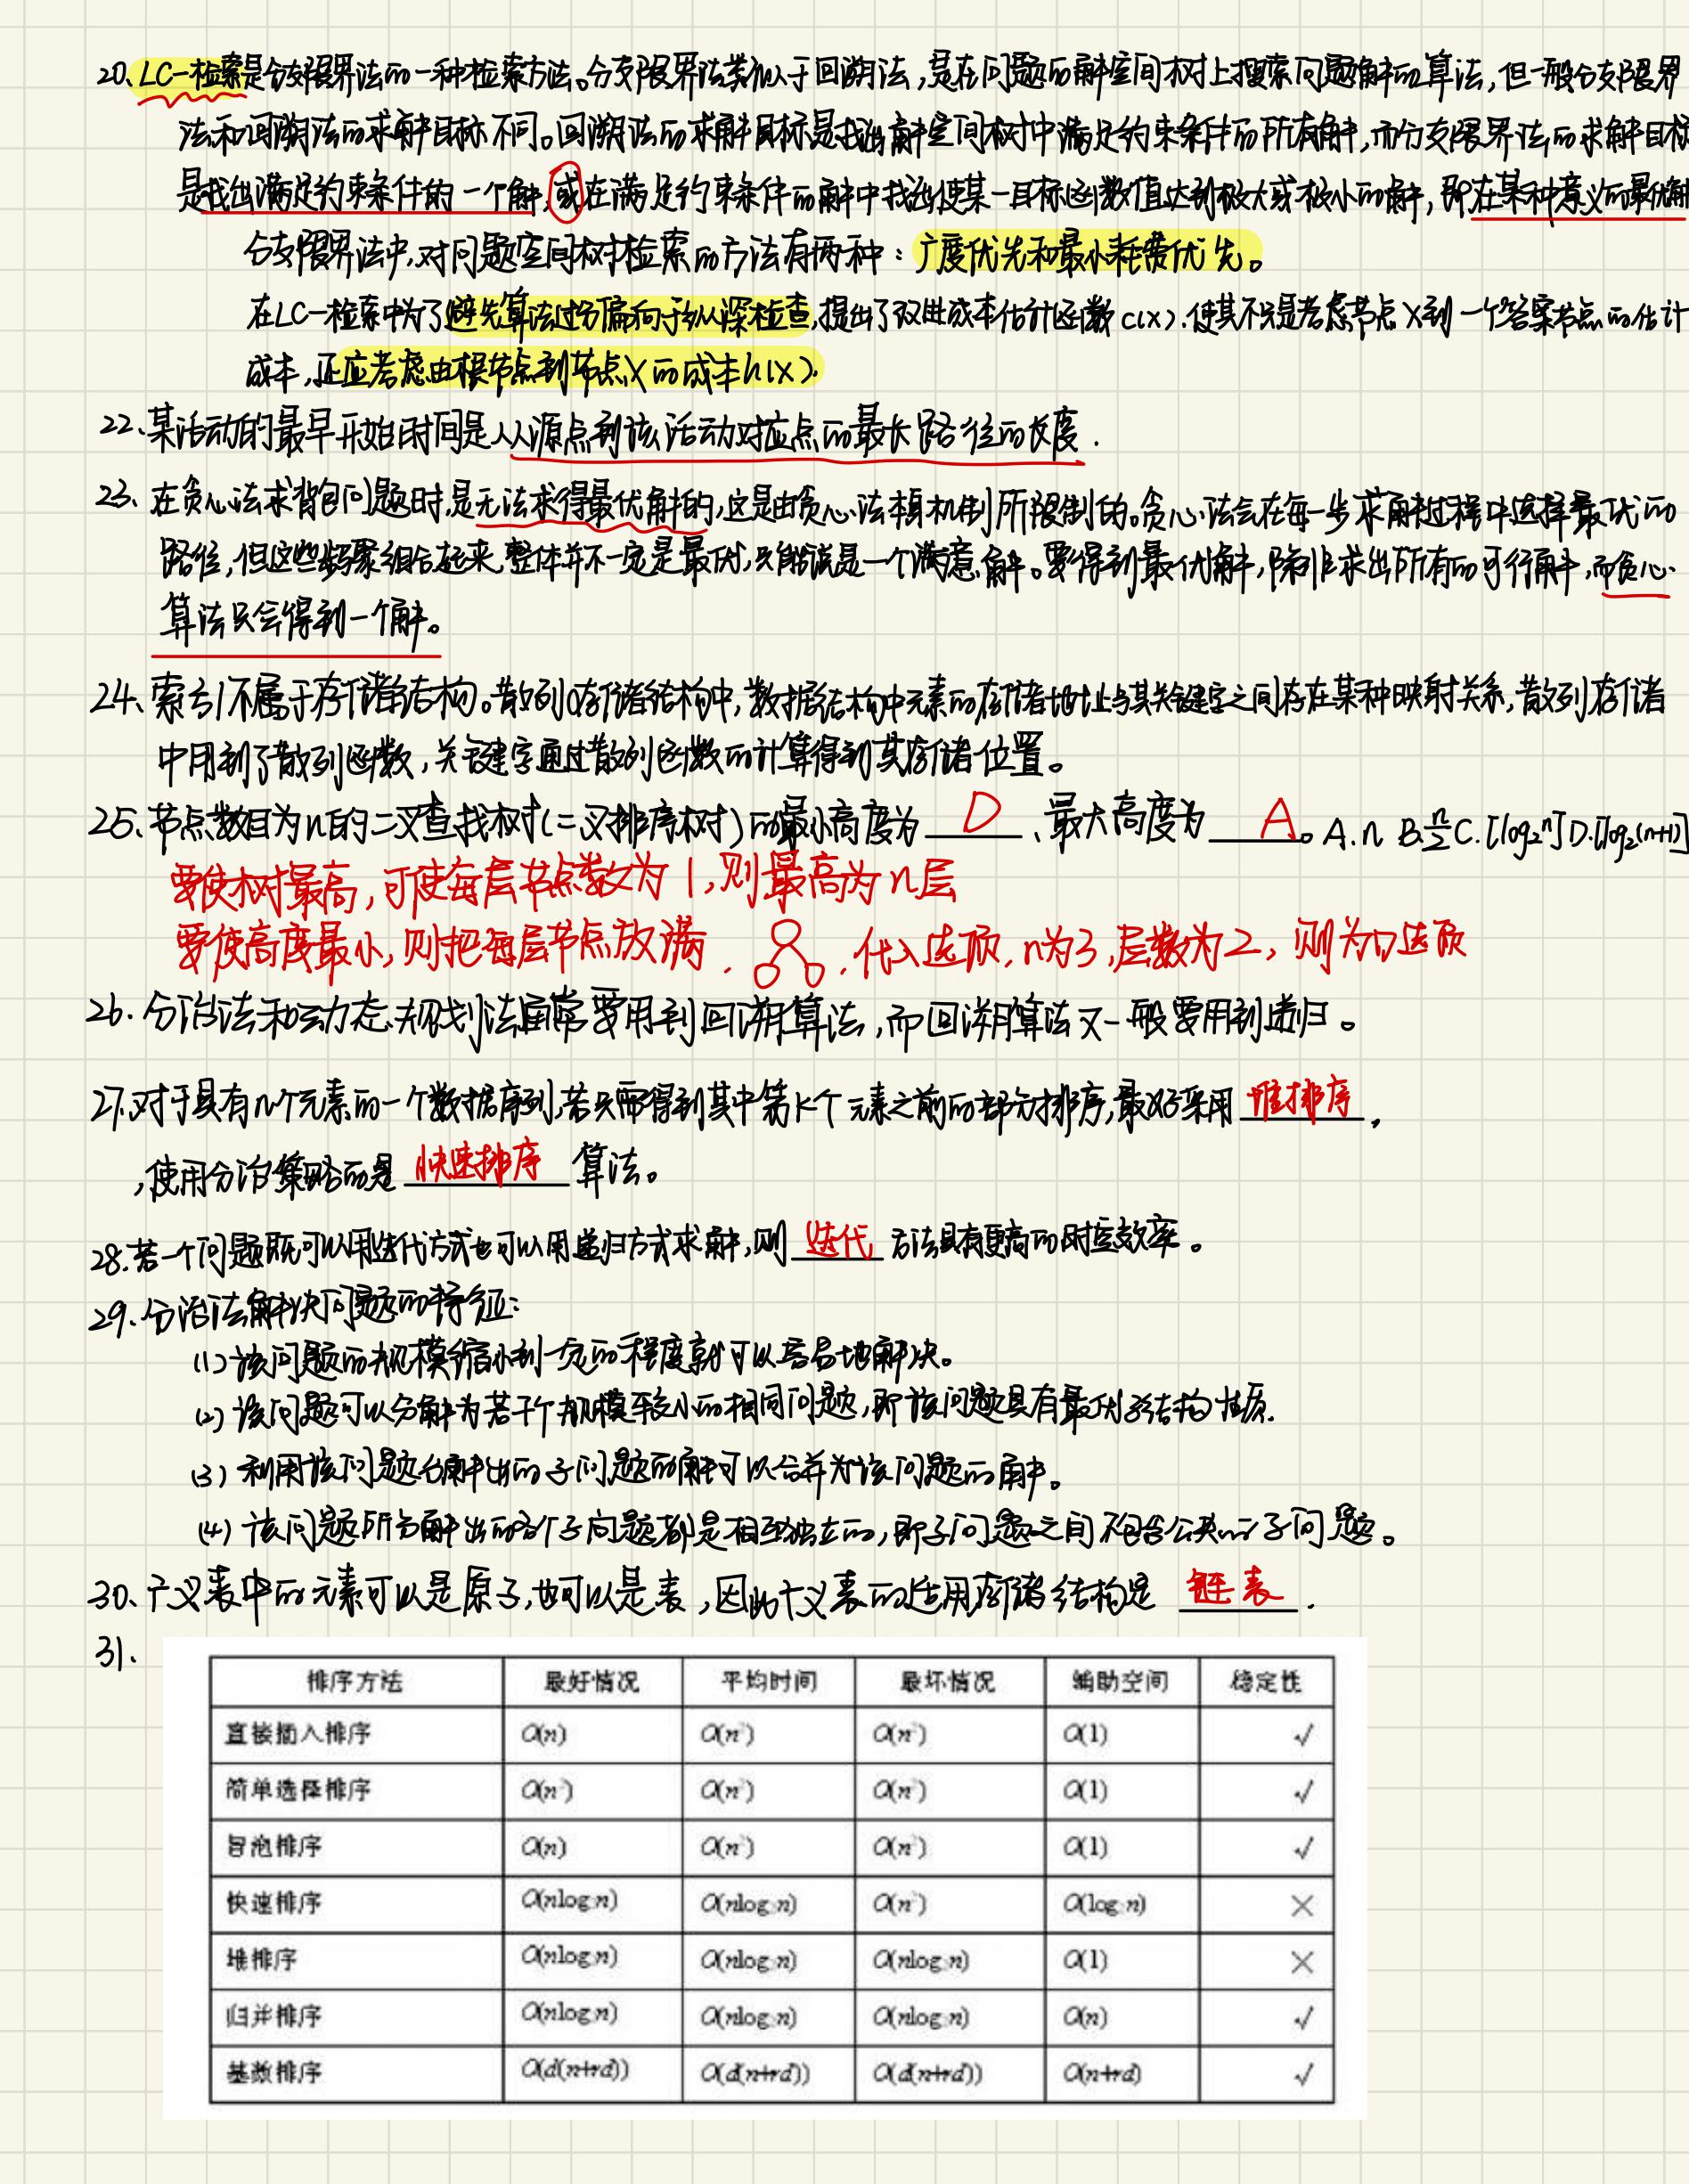 20、LC-检索是分支限界法的一种检索方法。分支限界法类似于回溯法,是在问题的解空间树上搜索问题解的算法,但一般分支限界
法和回溯法的求解目标不同。回溯法的求解目标是找出解空间树中满足约束条件的所有解,而分支限界法的求解目标
是找出满足约束条件的一个解,或在满足约束条件的解中找出使某一目标函数值达到极大或极小的解,即在某种意义的最优解
分支限界法中,对问题空间树检索的方法有两种:广度优先和最小耗费优先。
在LC-检索中为了避免算法过分偏向于纵深检查,提出了改进成本估计函数c(x).使其不只是考虑节点X到一个答案节点的估计
成本,还应考虑由根节点到节点X的成本h(x).
22、某活动的最早开始时间是从源点到该活动对应点的最长路径的长度.
23、在贪心法求背包问题时,是无法求得最优解的,这是由贪心法本身机制所限制的。贪心法会在每一步求解过程中选择最优的
路径,但这些步骤组合起来,整体并不一定是最优,只能说是一个满意解。要得到最优解,除非求出所有的可行解,而贪心
算法只会得到一个解。
24、索引不属于存储结构。散列存储结构中,数据结构中元素的存储地址与其关键字之间存在某种映射关系,散列存储
中用到了散列函数,关键字通过散列函数的计算得到其存储位置。
25、节点数目为n的二叉查找树(二叉排序树)的最小高度为 D 、最大高度为 A 。A.n B.n/2 C.⌈log₂n⌉ D.⌈log₂(n+1)⌉
要使树最高,可使每层节点数为1,则最高为n层
要使高度最小,则把每层节点放满. .代入选项,n为3,层数为2,则为D选项
26、分治法和动态规划法通常要用到回溯算法,而回溯算法又一般要用到递归。
27、对于具有n个元素的一个数据序列,若只需得到其中第k个元素之前的部分排序,最好采用 堆排序 .
,使用分治策略的是 快速排序 算法。
28.若一个问题既可以用迭代方式也可以用递归方式求解,则 迭代 方法具有更高的时空效率。
29.分治法解决问题的特征:
(1)该问题的规模缩小到一定的程度就可以容易地解决。
(2)该问题可以分解为若干个规模较小的相同问题,即该问题具有最优子结构性质.
(3)利用该问题分解出的子问题的解可以合并为该问题的解。
(4)该问题所分解出的各个子问题都是相互独立的,即子问题之间不包含公共的子问题。
30、广义表中的元素可以是原子,也可以是表,因此广义表的适用存储结构是 链表 .
31.
排序方法 最好情况 平均时间 最坏情况 辅助空间 稳定性
直接插入排序 O(n) O(n²) O(n²) O(1) √
简单选择排序 O(n²) O(n²) O(n²) O(1) √
冒泡排序 O(n) O(n²) O(n²) O(1) √
快速排序 O(nlog₂n) O(nlog₂n) O(n²) O(log₂n) ×
堆排序 O(nlog₂n) O(nlog₂n) O(nlog₂n) O(1) ×
归并排序 O(nlog₂n) O(nlog₂n) O(nlog₂n) O(n) √
基数排序 O(d(n+rd)) O(d(n+rd)) O(d(n+rd)) O(n+rd) √